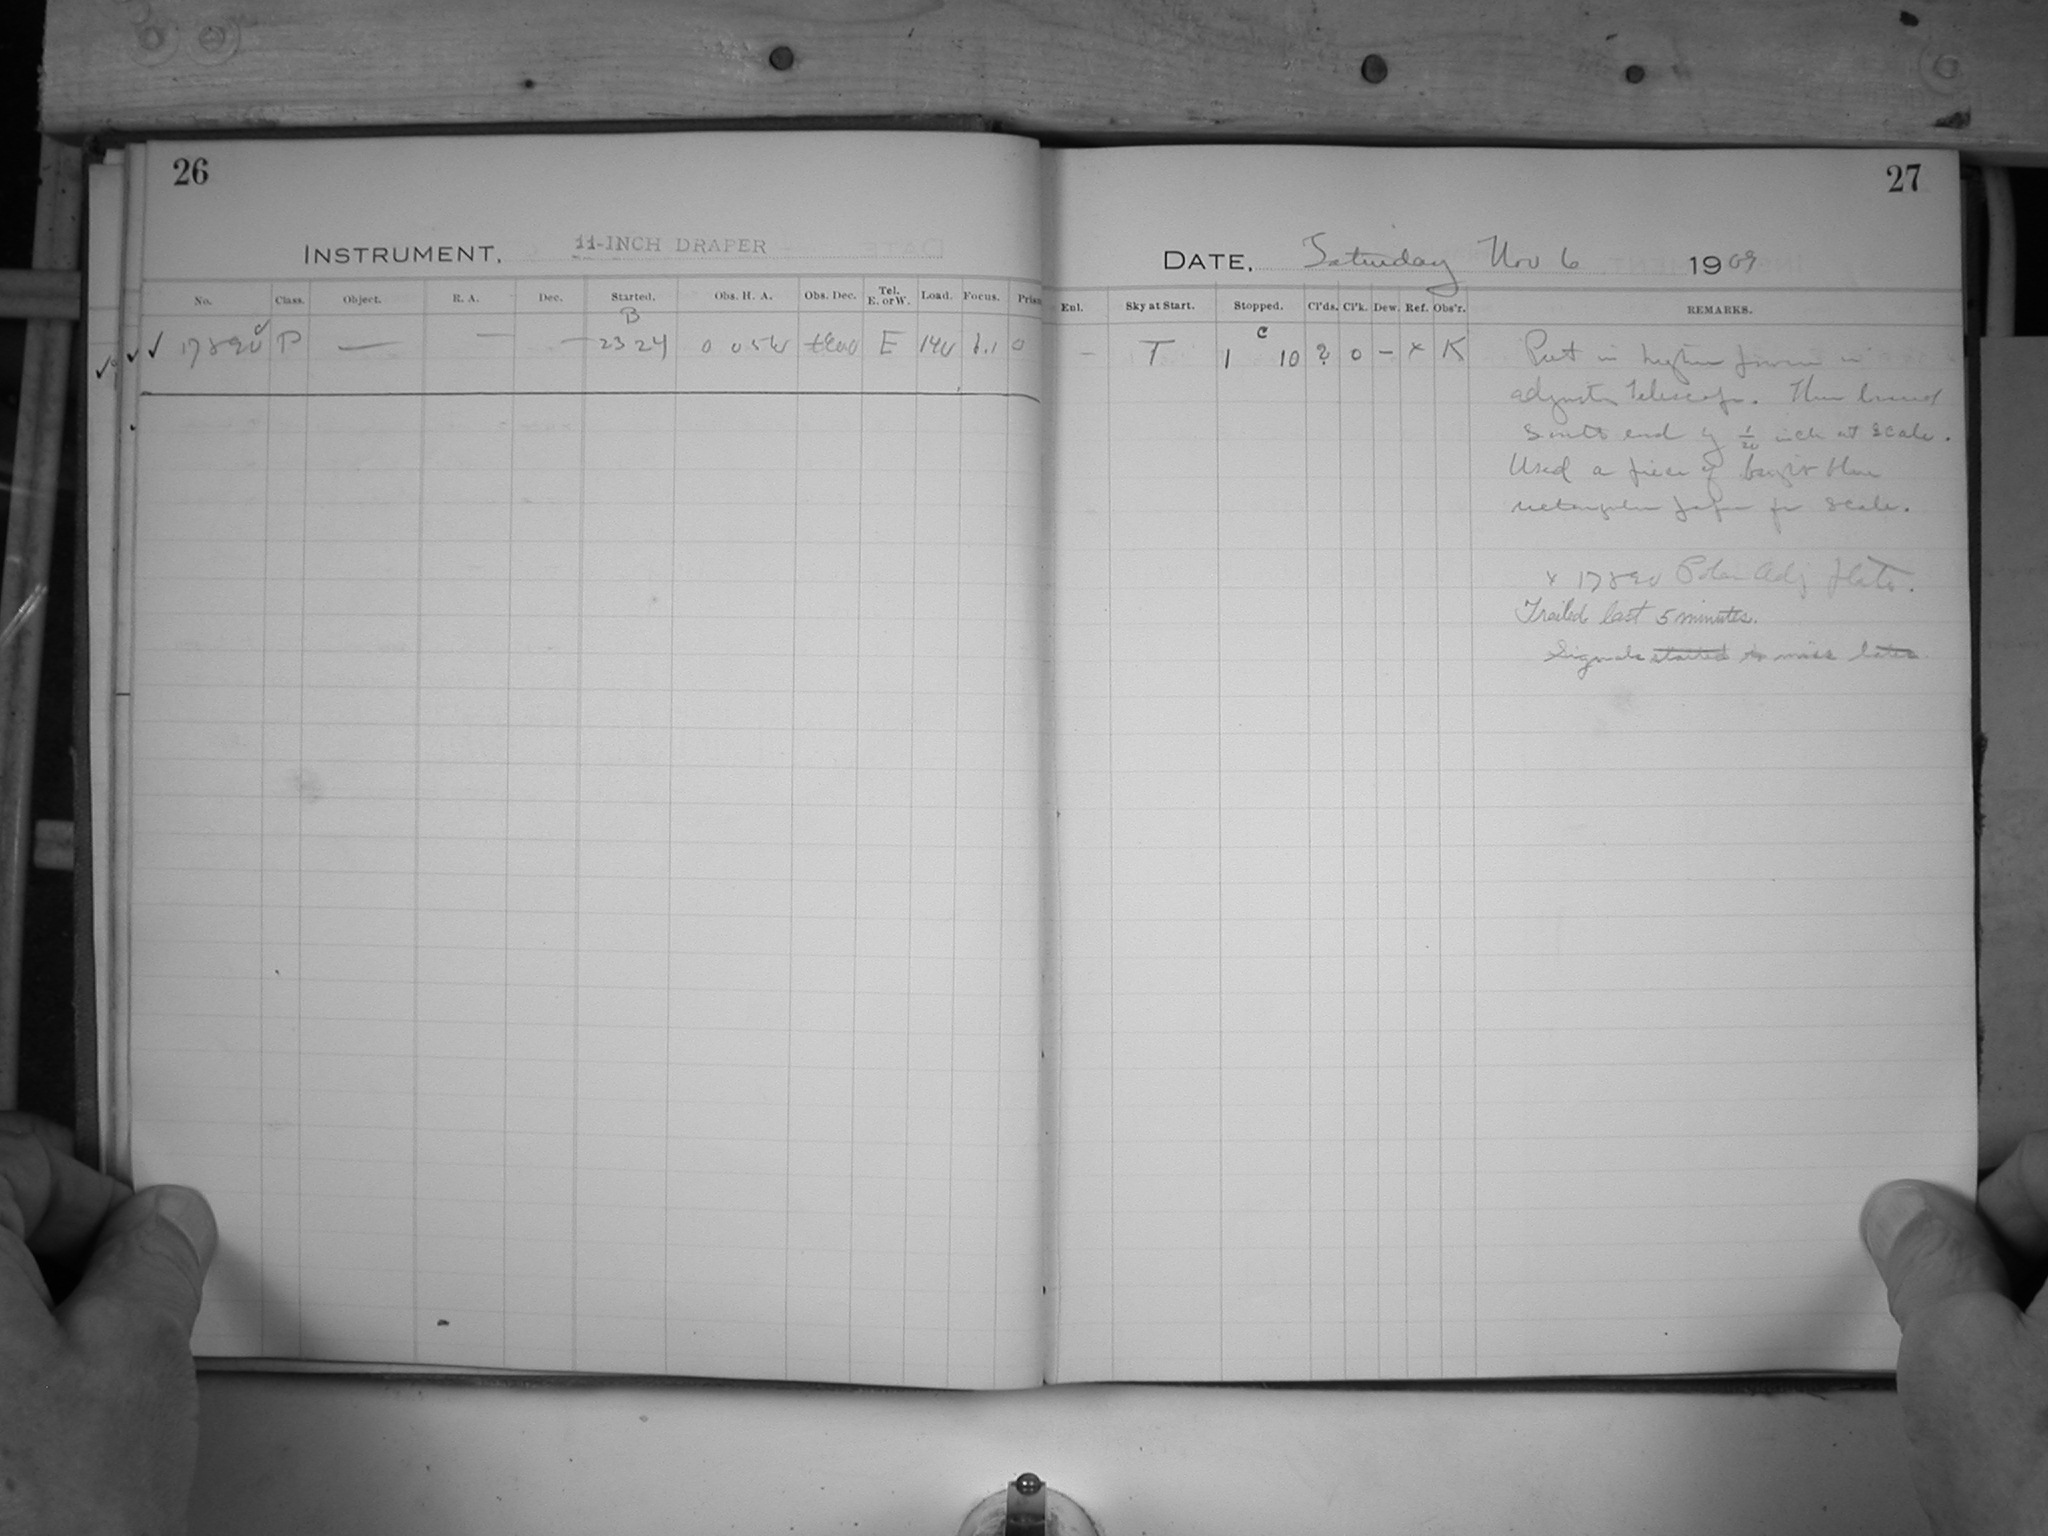 26
INSTRUMENT, 11-INCH DRAPER
No. Class. Object. R. A. Dec. Started. Obs. H. A. Obs. Dec. Tel. E. or W. Load. Focus. Prism
B
✓ ✓ 17890 P — — — 23 24 0 05W E 140 6.1 0
27
DATE, Saturday Nov 6 1909
Enl. Sky at Start. Stopped. Cl'ds. Cl'k. Dew. Ref. Obs'r. REMARKS.
c
– T 1 10 2 0 – x K Put in higher in
adjusting Telescope. Then
South end 1/20 inch at scale.
Used a piece of blue
rectangular paper for scale.
x 17890 Polar Adj plate.
Trailed last 5 minutes.
Signals started to miss later